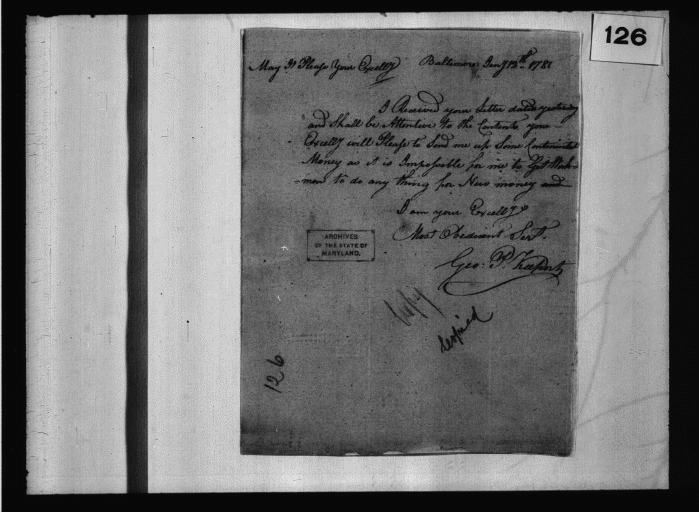 126
May It Pleas Your Excelly Baltimore Jany 13th 1781
I Received your Letter dated yesterday
and Shall be Attentive to the Contents your
Excelly will Pleas to Send me up Som Continental
Money as it is Impossible for me to Get Work
men to do any thing for New money and
I am your Excellys
Most Obedient Sert.
Geo. P. Keeports
ARCHIVES
OF THE STATE OF
MARYLAND.
Copy
Copied
126